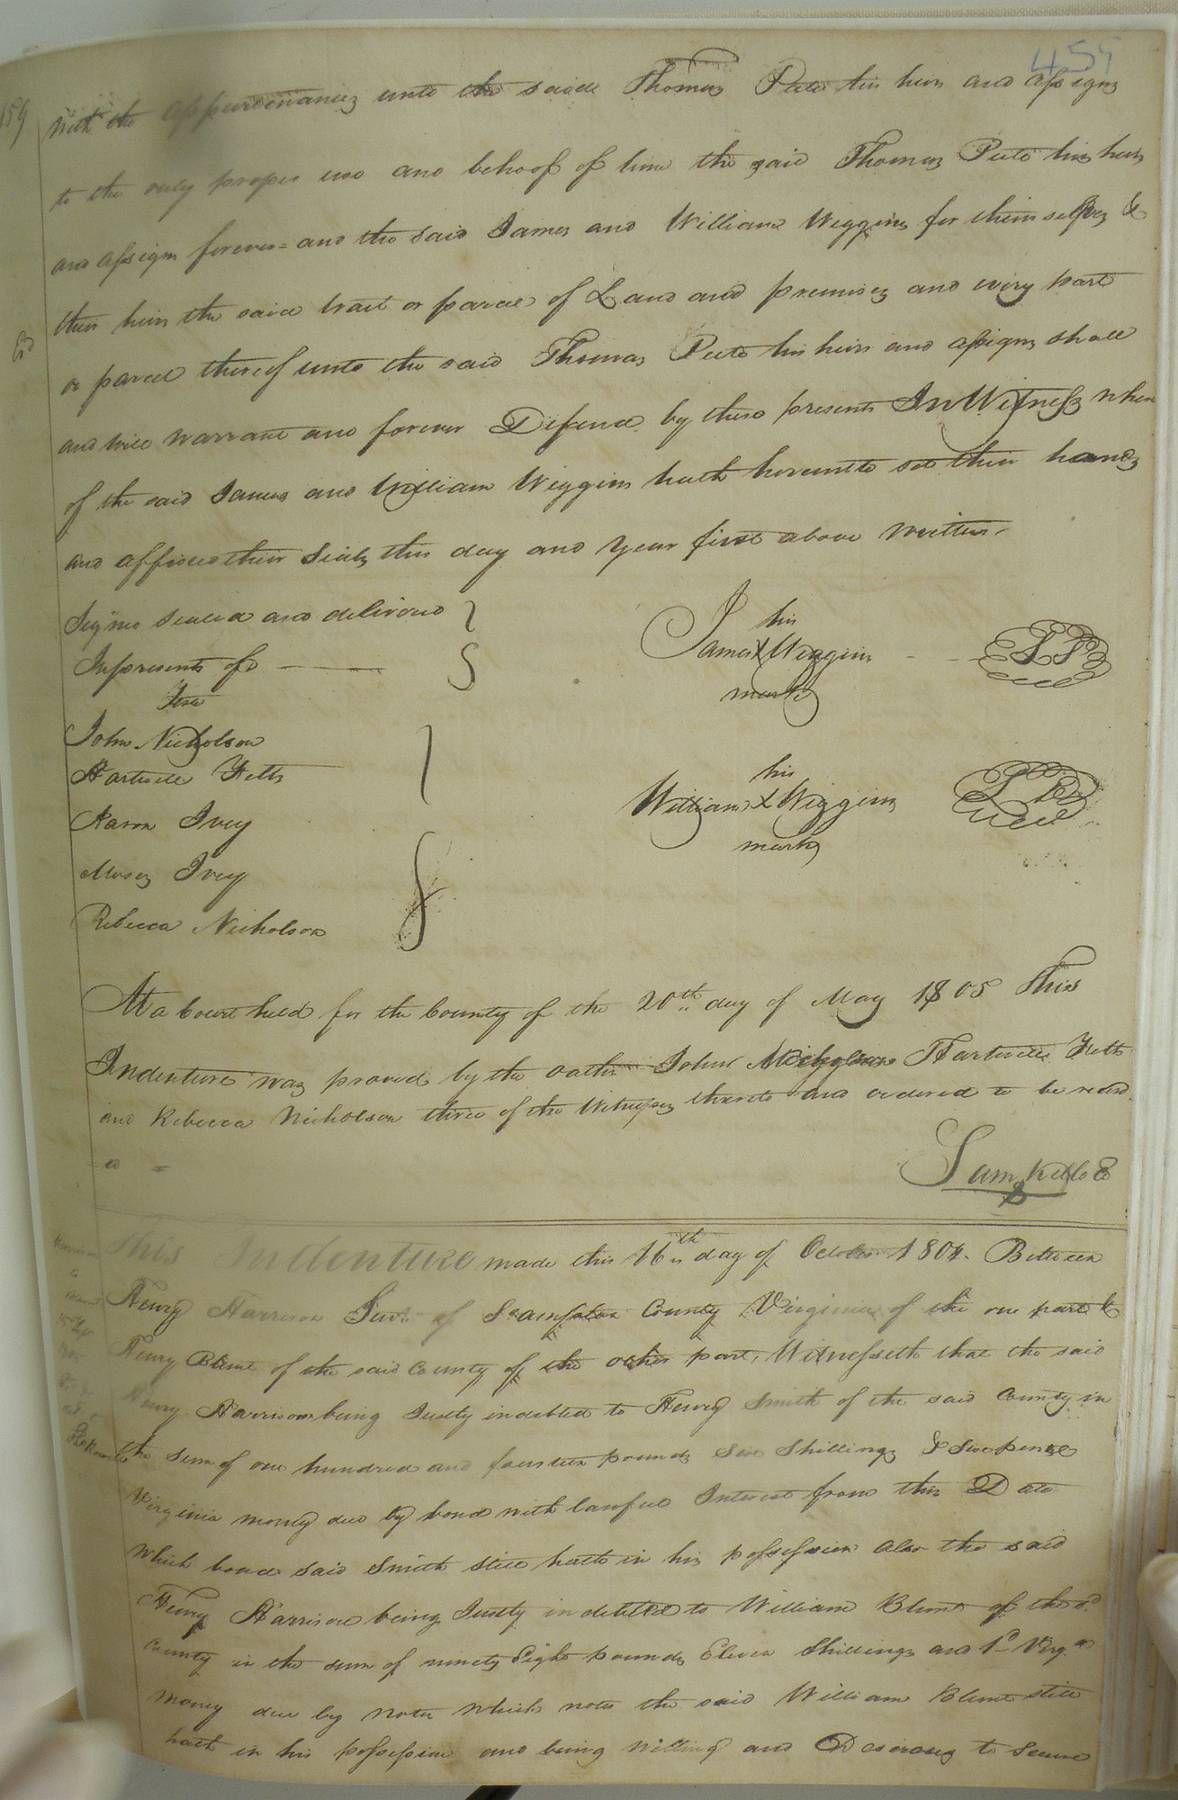 455
with the appurtenances unto the said Thomas Pete his heirs and assigns
to the only proper use and behoof of him the said Thomas Pete his heirs
and assigns forever = and the said James and William Wiggins for themselves &
their heirs the said tract or parcel of Land and premises and every part
or parcel thereof unto the said Thomas Pete his heirs and assigns shall
and will warrant and forever Defend by these presents In Witness when
of the said James and William Wiggins hath hereunto set their hands
and affixed their Seals this day and year first above written
Signed sealed and delivered
In presents of
John Nicholson
Hartwell Fetts
Aaron Ivey
Moses Ivey
Rebecca Nicholson
his
James X Wiggins
mark
his
William X Wiggins
mark
At a Court held for the County of the 20th day of May 1805 This
Indenture was proved by the oaths John Nicholson Hartwell Fetts
and Rebecca Nicholson three of the Witnesses thereto and ordered to be record
Sam Kello
This Indenture made this 16th day of October 1804. Between
Henry Harrison of Southampton County Virginia of the one part &
Henry Blunt of the said County of the other part, Witnesseth that the said
Henry Harrison being Justly indebted to Henry Smith of the said County in
the sum of one hundred and fourteen pounds Six Shillings & Six pence
Virginia money due by bond with lawful Interest from this Date
which bond said Smith still hath in his possession also the said
Henry Harrison being Justly indebted to William Blunt of the sd.
County in the sum of ninety Eight pounds Eleven Shillings and 1d Virga
money due by note which note the said William Blunt still
hath in his possession and being willing and Desirous to Secure